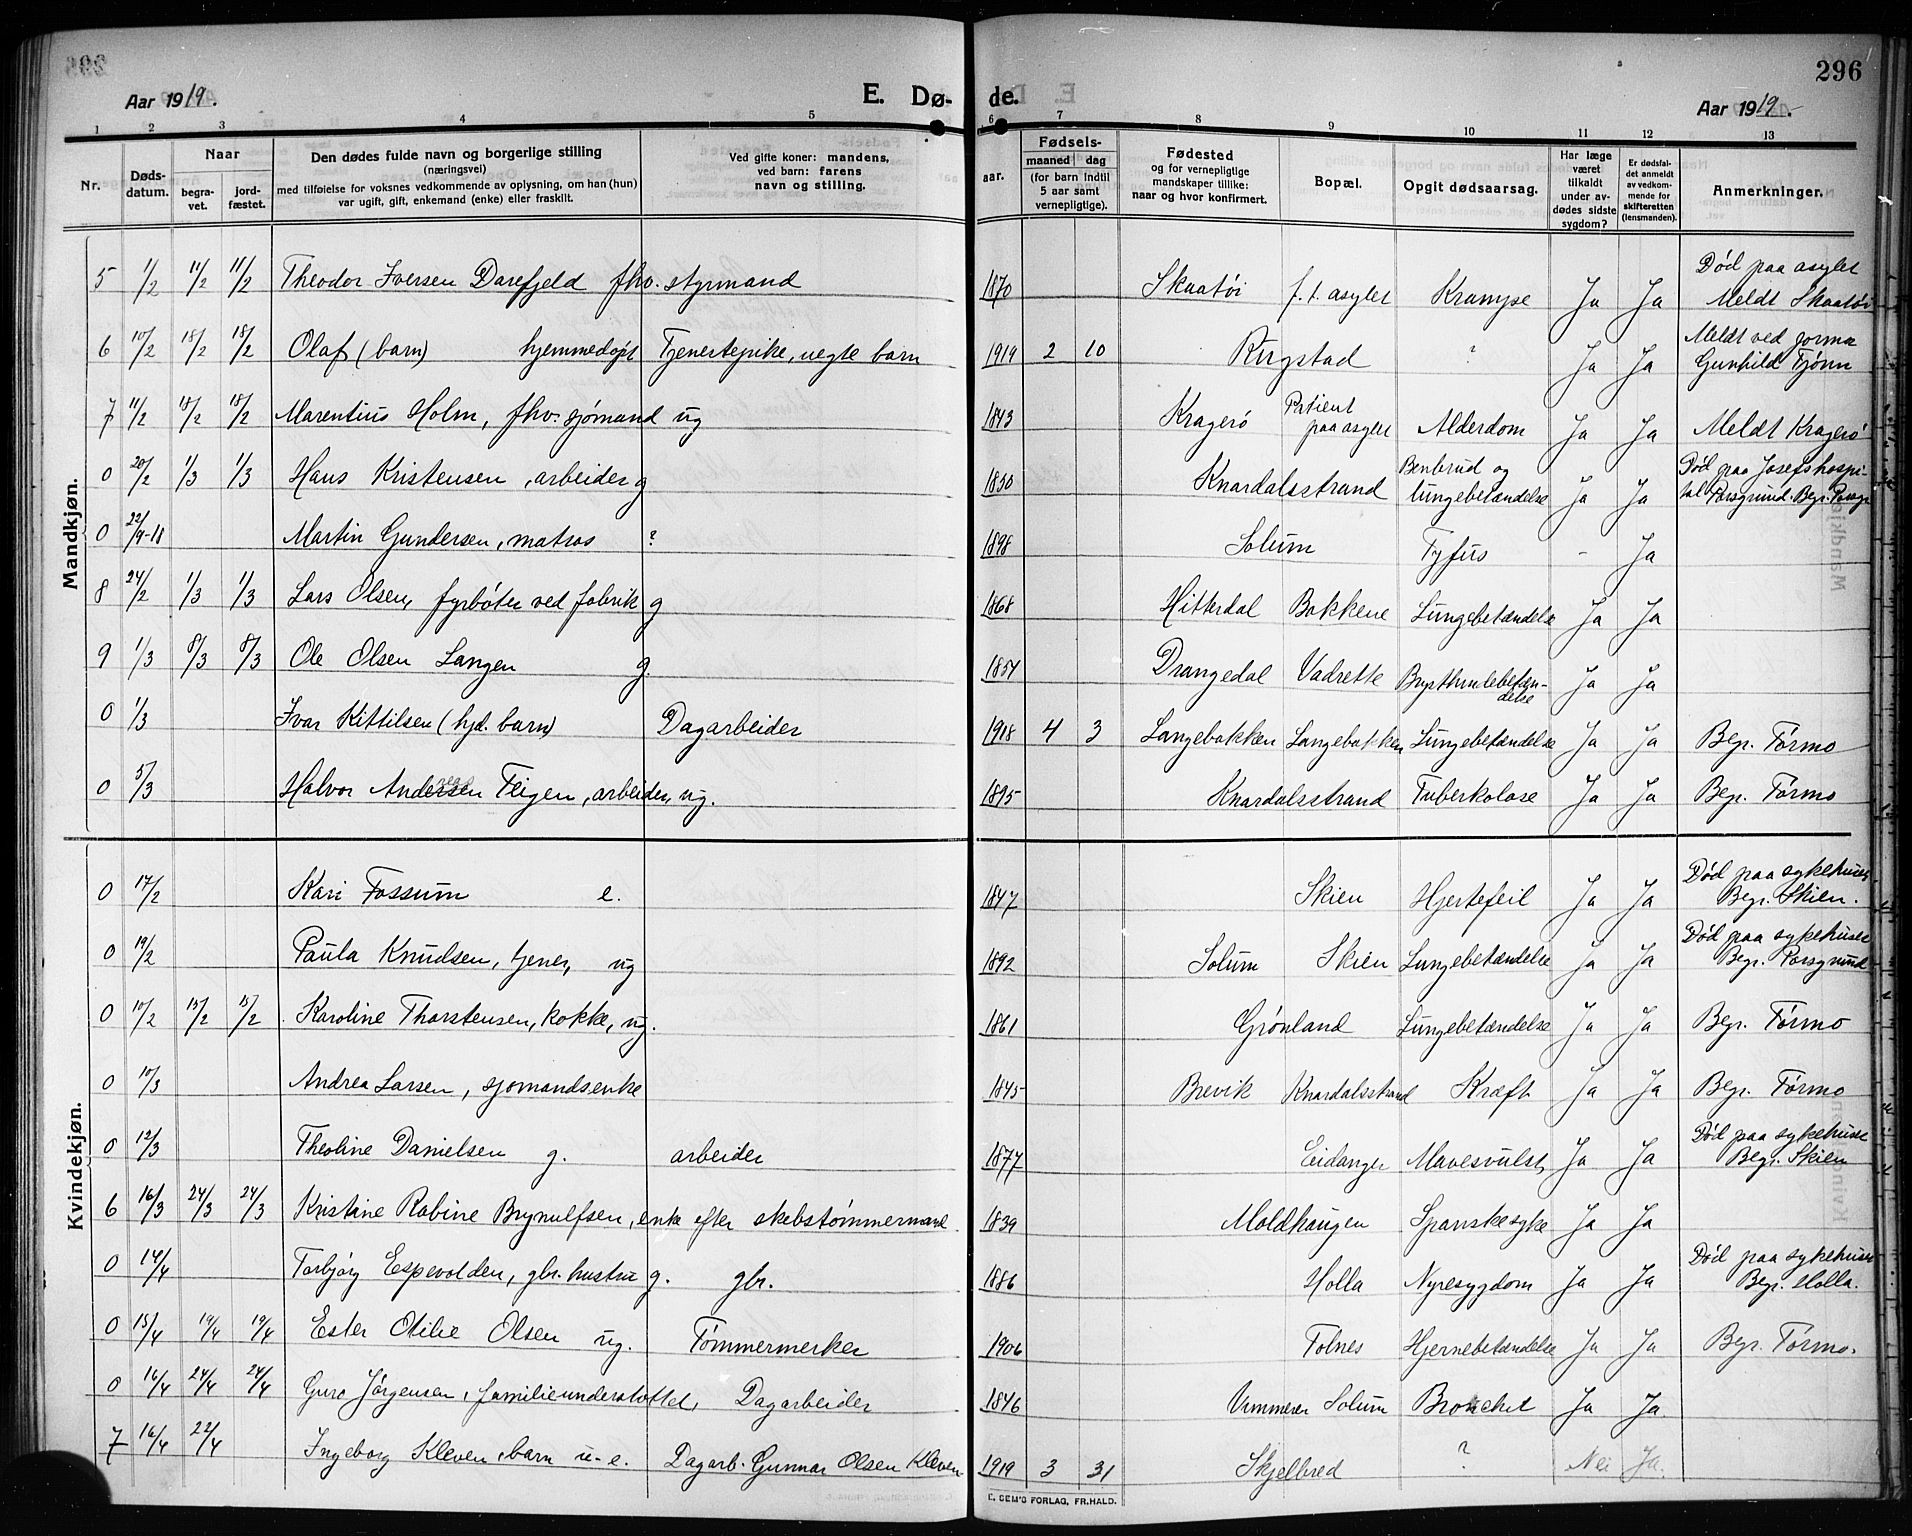 296
Aar 1919.
E. Dø- de.
Aar 1919.
1 2 3 4 5 6 7 8 9 10 11 12 13
Nr.
Døds-
datum.
Naar
begra-
vet.
jord-
fæstet.
Den dødes fulde navn og borgerlige stilling
(næringsvei)
med tilføielse for voksnes vedkommende av oplysning, om han (hun)
var ugift, gift, enkemand (enke) eller fraskilt.
Ved gifte koner: mandens,
ved barn: farens
navn og stilling.
Fødsels-
aar. maaned dag
(for barn indtil
5 aar samt
vernepligtige).
Fødested
og for vernepligtige
mandskaper tillike:
naar og hvor konfirmert.
Bopæl.
Opgit dødsaarsag.
Har læge
været
tilkaldt
under av-
dødes sidste
sygdom?
Er dødsfal-
det anmeldt
av vedkom-
mende for
skifteretten
(lensmanden).
Anmerkninger.
Mandkjøn.
5 1/2 11/2 11/2 Theodor Iversen Darefjeld fhv. styrmand 1870 Skaatöi f. t. asylet Krampe Ja Ja Død paa asylet
Meldt Skaatöi
6 10/2 18/2 18/2 Olaf (barn) hjemmedöpt Tjenestepike, uegte barn 1919 2 10 Ringstad ? Ja Ja Meldt ved jorma
Gunhild Tjønn
7 11/2 18/2 18/2 Marentius Holm, fhv. sjömand ug 1843 Kragerö Patient
paa asylet Alderdom Ja Ja Meldt Kragerö
0 20/2 1/3 1/3 Hans Kristensen, arbeider g 1850 Knardalsstrand Benbrud og
lungebetændelse Ja Ja Död paa Josefs hospi-
tal Porsgrund. Begr. Porsgr.
0 22/9-18 Martin Gundersen, matros ? 1898 Solum Tyfus - Ja
8 24/2 1/3 1/3 Lars Olsen, fyrböter ved fabrik g 1868 Hitterdal Bakkene Lungebetændelse Ja Ja
9 1/3 8/3 8/3 Ole Olsen Langen g. 1854 Drangedal Vadrette Brysthindebetæn-
delse Ja Ja
0 1/3 Ivar Kittilsen (hjd. barn) Dagarbeider 1918 4 3 Langebakken Langebakken Lungebetændelse Ja Ja Begr. Tórmo
0 5/3 Halvor Andersen Teigen, arbeider, ug. 1895 Knardalsstrand Tuberkolose Ja Ja Begr. Tórmo
Kvindekjøn.
0 17/2 Kari Fossum e. 1847 Skien Hjertefeil Ja Ja Död paa sykehuset
Begr. Skien.
0 19/2 Paula Knudsen, tjener, ug 1892 Solum Skien Lungebetændelse Ja Ja Död paa sykehuset
Begr. Porsgrund
0 10/2 15/2 15/2 Karoline Thorstensen, kokke, ug. 1861 Grönland Lungebetændelse Ja Ja Begr. Tórmo
0 10/3 Andrea Larsen, sjomandsenke 1845 Brevik Knardalsstrand Kræft Ja Ja Begr. Tórmo
0 12/3 Theoline Danielsen g. arbeider 1877 Eidanger Mavesvulst Ja Ja Död paa sykehuse
Begr. Skien
6 16/3 24/3 24/3 Kristine Rabine Brynulfsen, enke efter skibstømmermand. 1839 Moldhaugen Spanskesyke Ja Ja
0 14/4 Torbjörg Espevolden, gbr. hustru g. gbr. 1886 Holla Nyresygdom Ja Ja Död paa sykehuse
Begr. Holla.
0 15/4 19/4 19/4 Ester Otilie Olsen ug. Tømmermerker 1906 Tolnes Hjernebetændelse Ja Ja Begr. Tórmo.
0 16/4 24/4 24/4 Guro Jørgensen, familieunderstöttet, Dagarbeider 1846 Vimmerer Solum Bronchet Ja Ja.
7 16/4 22/4 Ingeborg Kleven, barn u-e. Dagarb. Gunnar Olsen Kleven 1919 3 31 Skjelbred ? Nei Ja.
E. SEM'S FORLAG, FR.HALD.